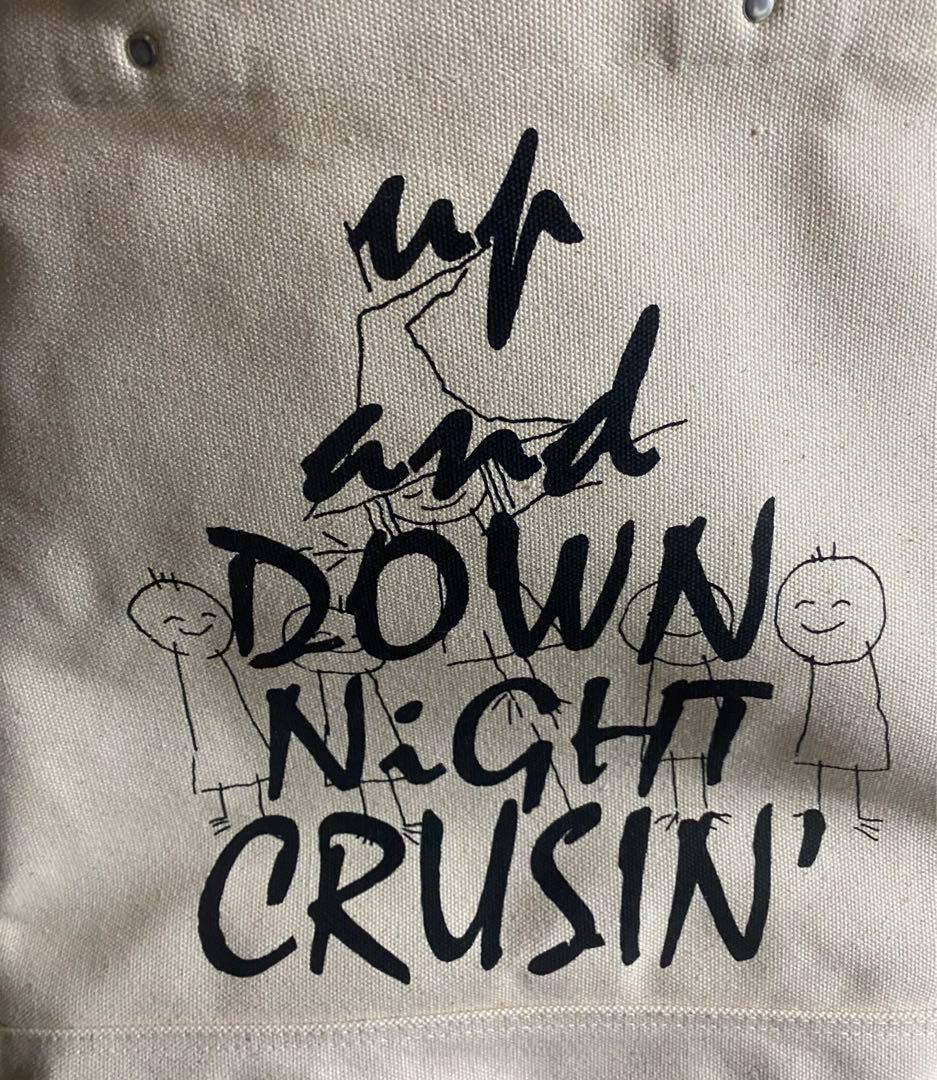 up
and
DOWN
NiGHT
CRUSIN'